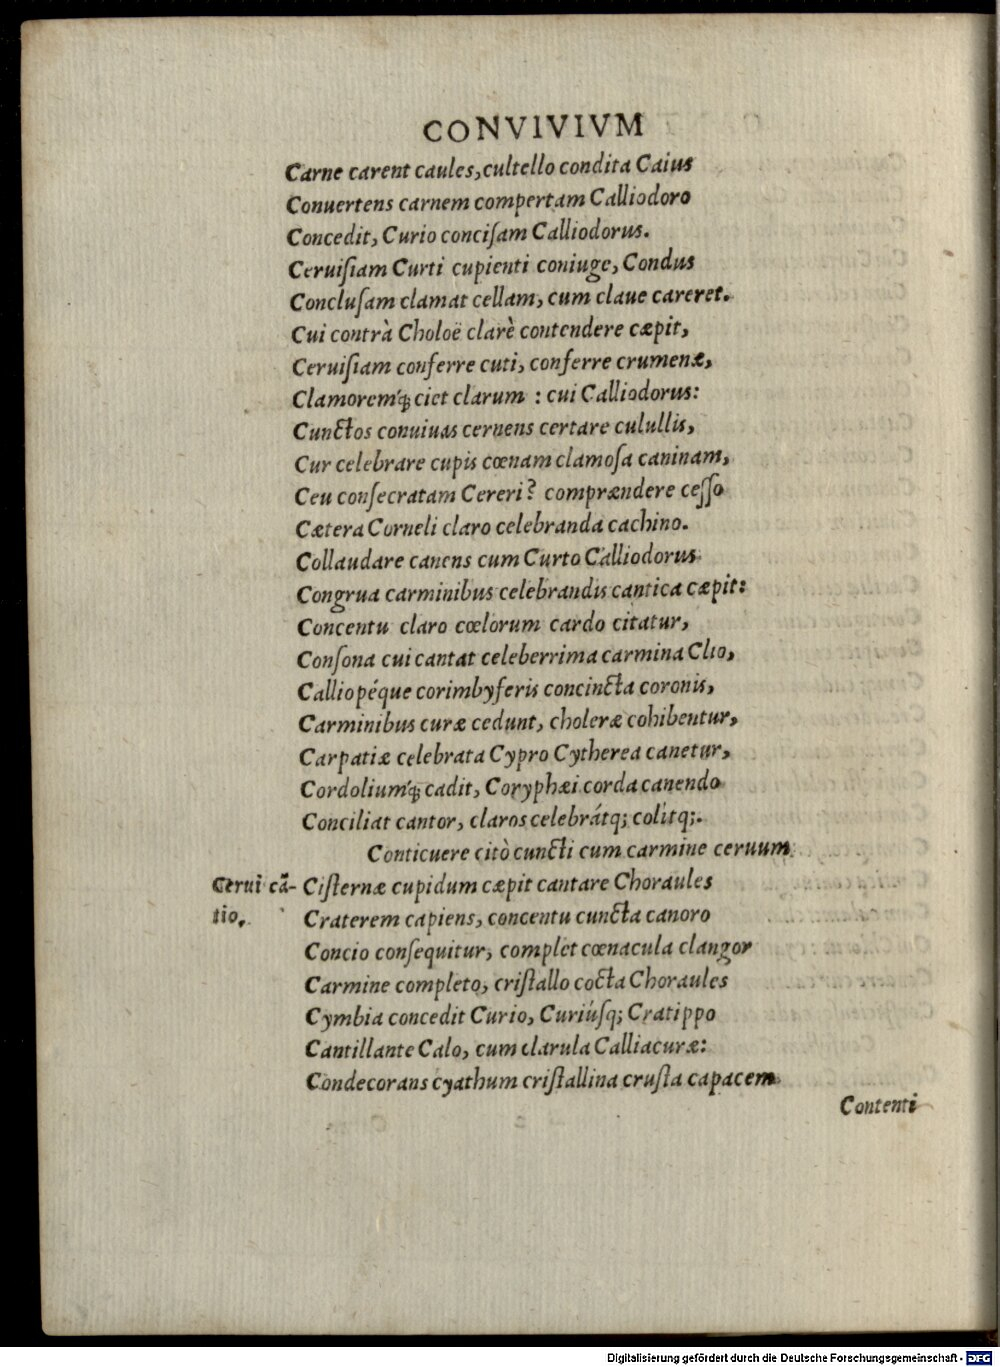 CONVIVIVM
Carne carent caules, cultello condita Caius
Conuertens carnem compertam Calliodoro
Concedit, Curio conciſam Calliodorus.
Ceruiſiam Curti cupienti coniuge, Condus
Concluſam clamat cellam, cum claue careret.
Cui contrà Choloë clarè contendere cæpit,
Ceruiſiam conferre cuti, conferre crumenæ,
Clamoremq́ꝫ ciet clarum : cui Calliodorus:
Cunctos conuiuas cernens certare culullis,
Cur celebrare cupis cœnam clamoſa caninam,
Ceu conſecratam Cereri? comprændere ceſſo
Cætera Corneli claro celebranda cachino.
Collaudare canens cum Curto Calliodorus
Congrua carminibus celebrandis cantica cæpit:
Concentu claro cœlorum cardo citatur,
Conſona cui cantat celeberrima carmina Clio,
Calliopéque corimbyferis concincta coronis,
Carminibus curæ cedunt, choleræ cohibentur,
Carpatiæ celebrata Cypro Cytherea canetur,
Cordoliumq́ꝫ cadit, Coryphæi corda canendo
Conciliat cantor, claros celebrátq; colitq;.
Conticuere citò cuncti cum carmine ceruum
Cerui cā- Ciſternæ cupidum cæpit cantare Choraules
tio. Craterem capiens, concentu cuncta canoro
Concio conſequitur, complet cœnacula clangor
Carmine completo, criſtallo cocta Choraules
Cymbia concedit Curio, Curiúſq; Cratippo
Cantillante Calo, cum clarula Calliacuræ:
Condecorans cyathum criſtallina cruſta capacem
Contenti
Digitalisierung gefördert durch die Deutsche Forschungsgemeinschaft - DFG